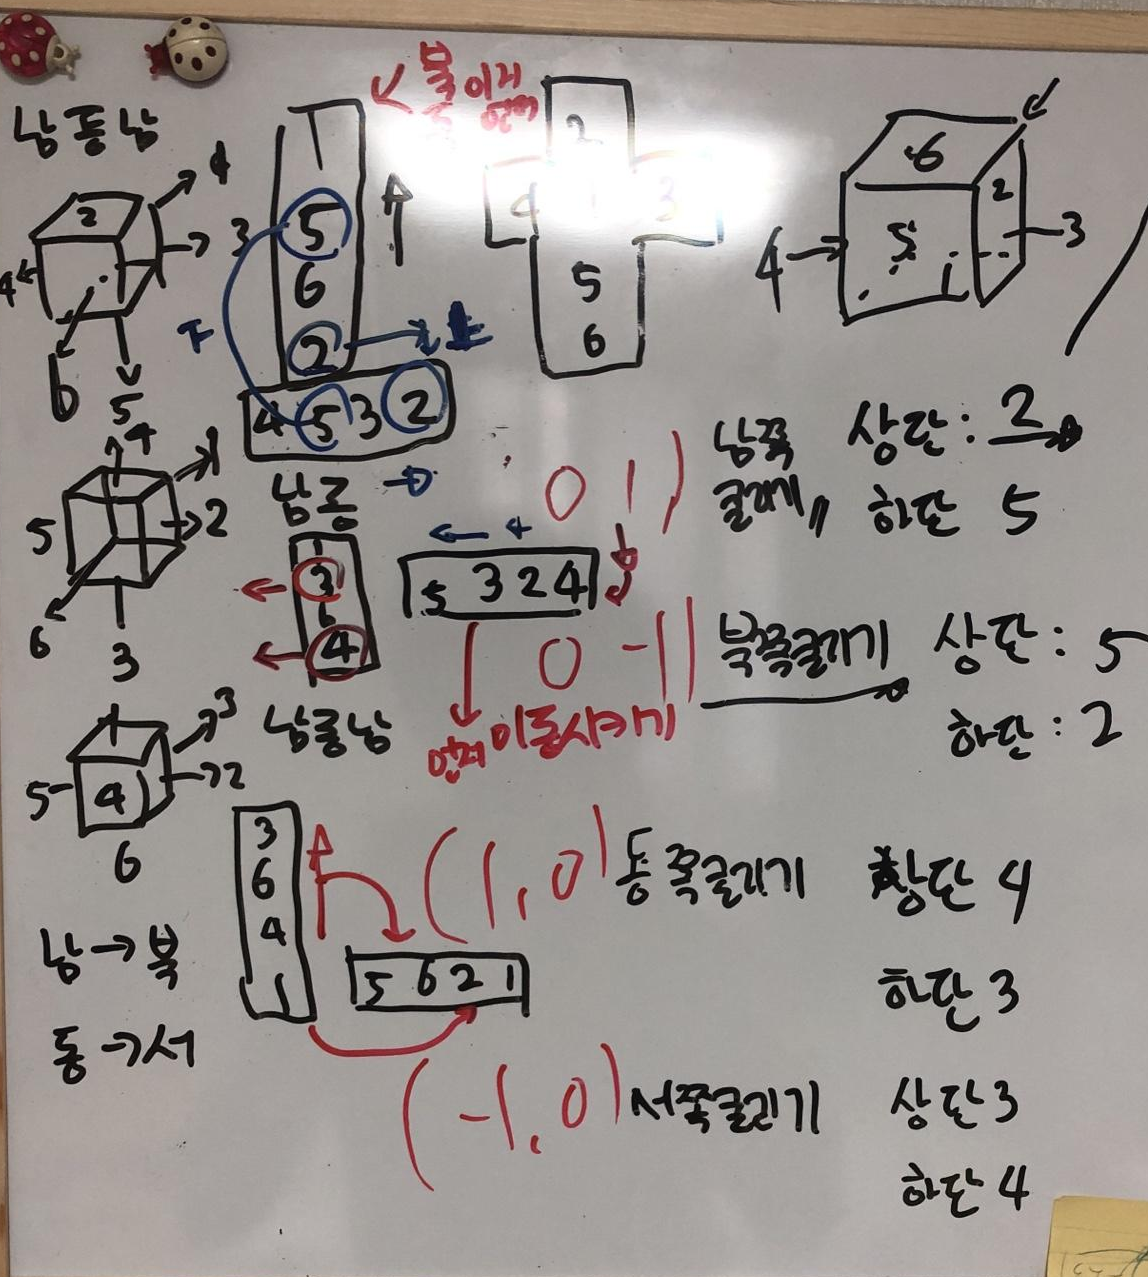 남동남
2
4
3
4
6
5
4
1
5
2
6
3
1
4
3
5
2
6
남→북
동→서
1
5
6
2
4 5 3 2
남동
1
3
6
4
5 3 2 4
남동남
3
6
4
1
5 6 2 1
북
2
4 1 3
5
6
6
5
2
4
3
1
0 1)
남쪽
굴리기
상단: 2
하단 5
0 -1
이동시키기
북쪽굴리기
상단: 5
하단: 2
(1, 0)
동쪽굴리기
상단 4
하단 3
(-1, 0)
서쪽굴리기
상단 3
하단 4